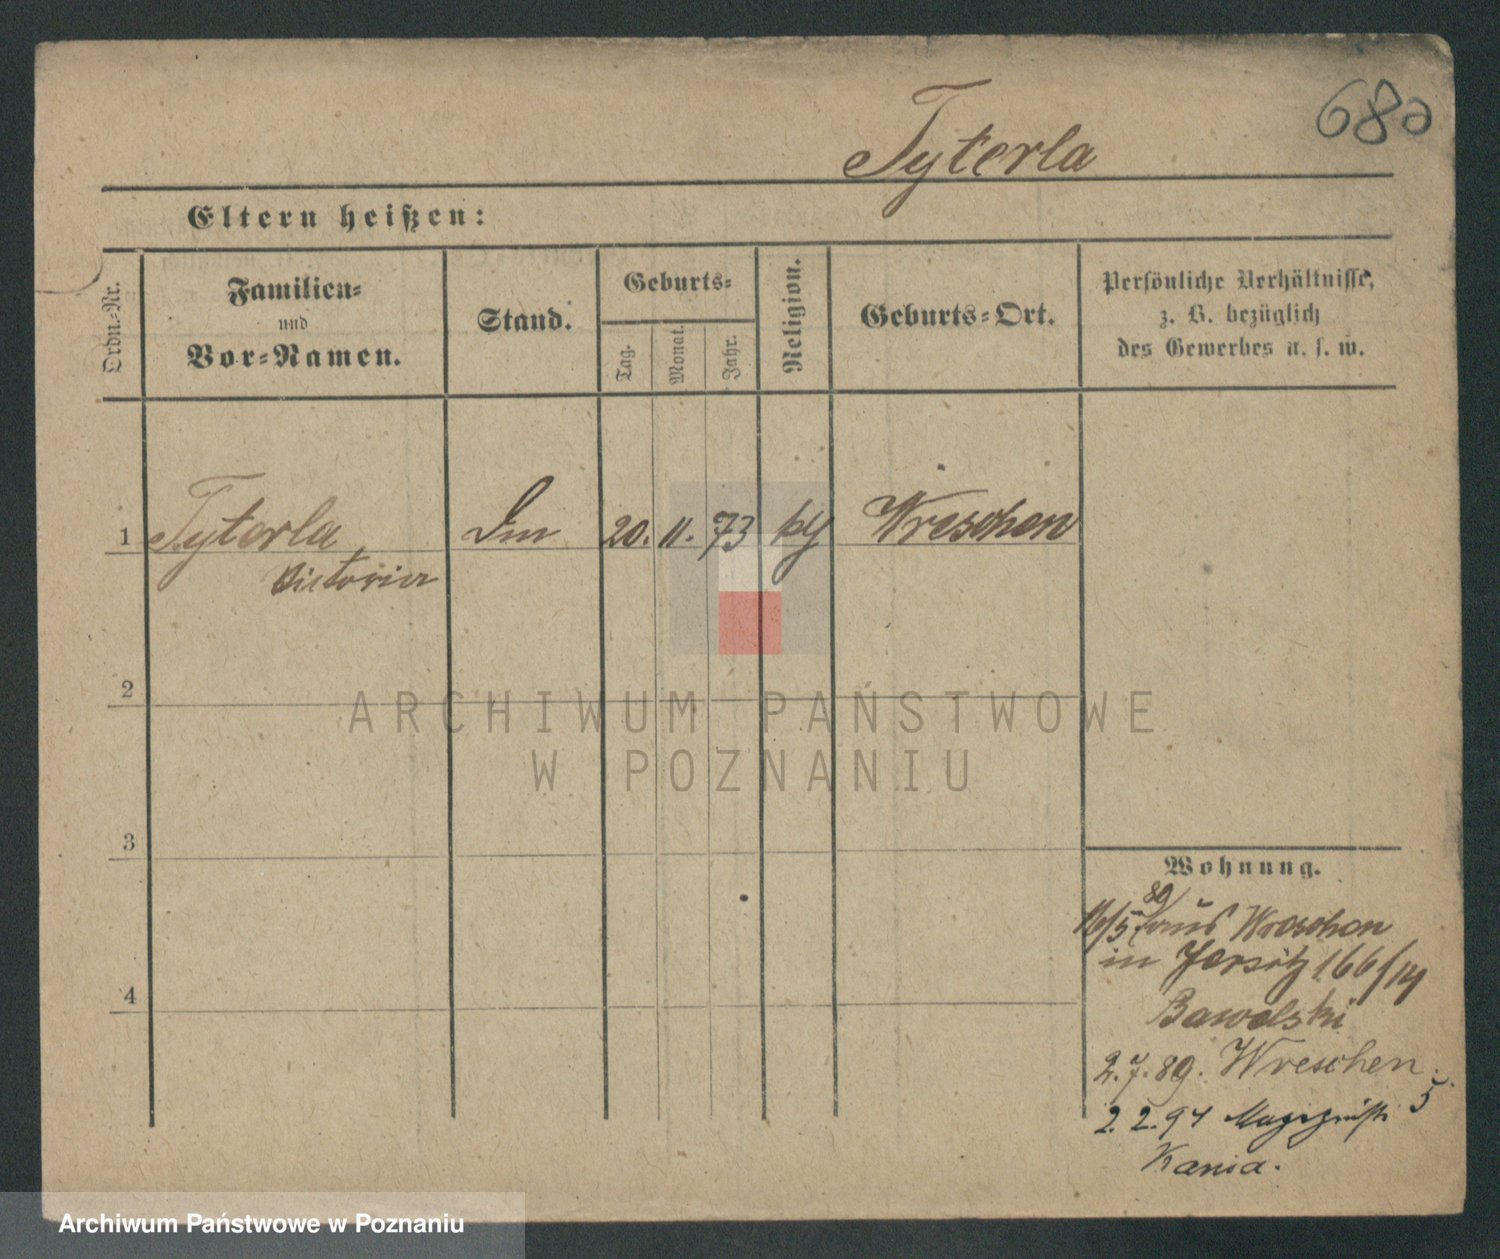 680
Tyterla
Eltern heißen:
Ordn.-Nr.
Familien-
und
Vor-Namen.
Stand.
Geburts-
Tag.
Monat.
Jahr.
Religion.
Geburts-Ort.
Persönliche Verhältnisse,
z. B. bezüglich
des Gewerbes u. s. w.
1
Tyterla
Victoria
20. 11. 73
Wreschen
2
3
4
Wohnung.
89
16/5 aus Wreschen
in Jersitz 166/14
Bawolski
2.7.89. Wreschen.
2.2.94 5
Kania.
ARCHIWUM PAŃSTWOWE
W POZNANIU
Archiwum Państwowe w Poznaniu